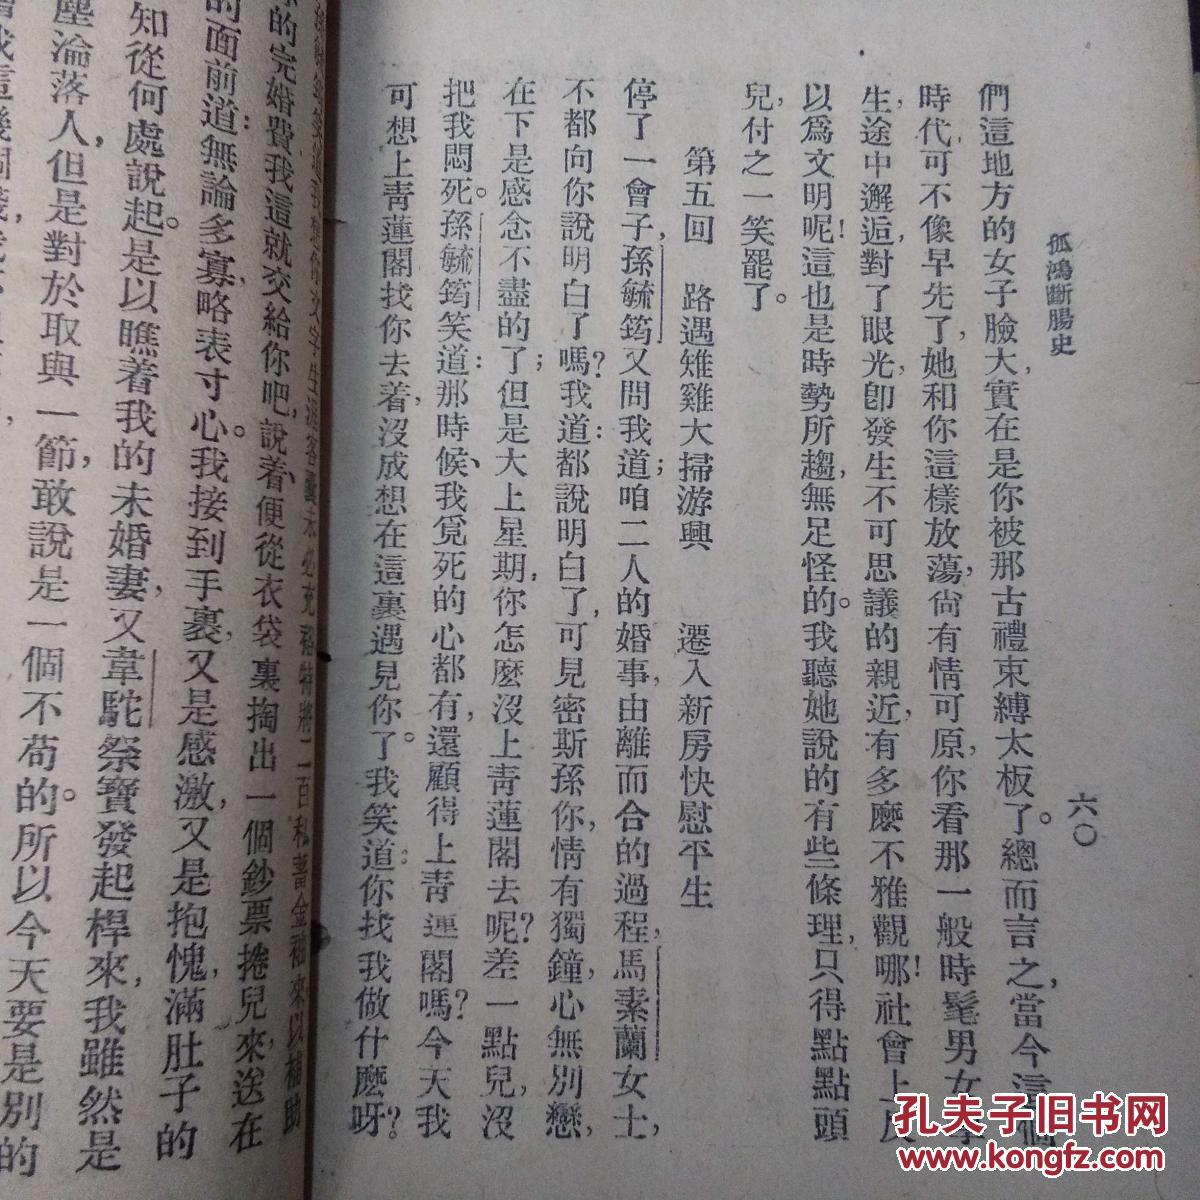 孤鴻斷腸史
六〇
們這地方的女子臉大,實在是你被那古禮束縛太板了。總而言之,當今這個
時代可不像早先了,她和你這樣放蕩,尙有情可原,你看那一般時髦男女學
生,途中邂逅,對了眼光,卽發生不可思議的親近,有多麽不雅觀哪!社會上反
以爲文明呢!這也是時勢所趨,無足怪的。我聽她說的有些條理,只得點點頭
兒,付之一笑罷了。
第五回 路遇雉雞大掃游興 遷入新房快慰平生
停了一會子,孫毓筠又問我道;咱二人的婚事,由離而合的過程,馬素蘭女士,
不都向你說明白了嗎?我道:都說明白了,可見密斯孫你,情有獨鐘,心無別戀,
在下是感念不盡的了;但是大上星期,你怎麽沒上靑蓮閣去呢?差一點兒,沒
把我悶死。孫毓筠笑道:那時候、我覓死的心都有,還顧得上靑蓮閣嗎?今天我
可想上靑蓮閣找你去着,沒成想在這裏遇見你了。我笑道:你找我做什麽呀?
你的完婚費,我這就交給你吧,說着、便從衣袋裏掏出一個鈔票捲兒來,送在
的面前道:無論多寡,略表寸心。我接到手裏,又是感激,又是抱愧,滿肚子的
知從何處說起。是以瞧着我的未婚妻,又韋駝祭寶發起桿來,我雖然是
塵淪落人,但是對於取與一節,敢說是一個不苟的。所以今天要是別的
孔夫子旧书网
kongfz.com